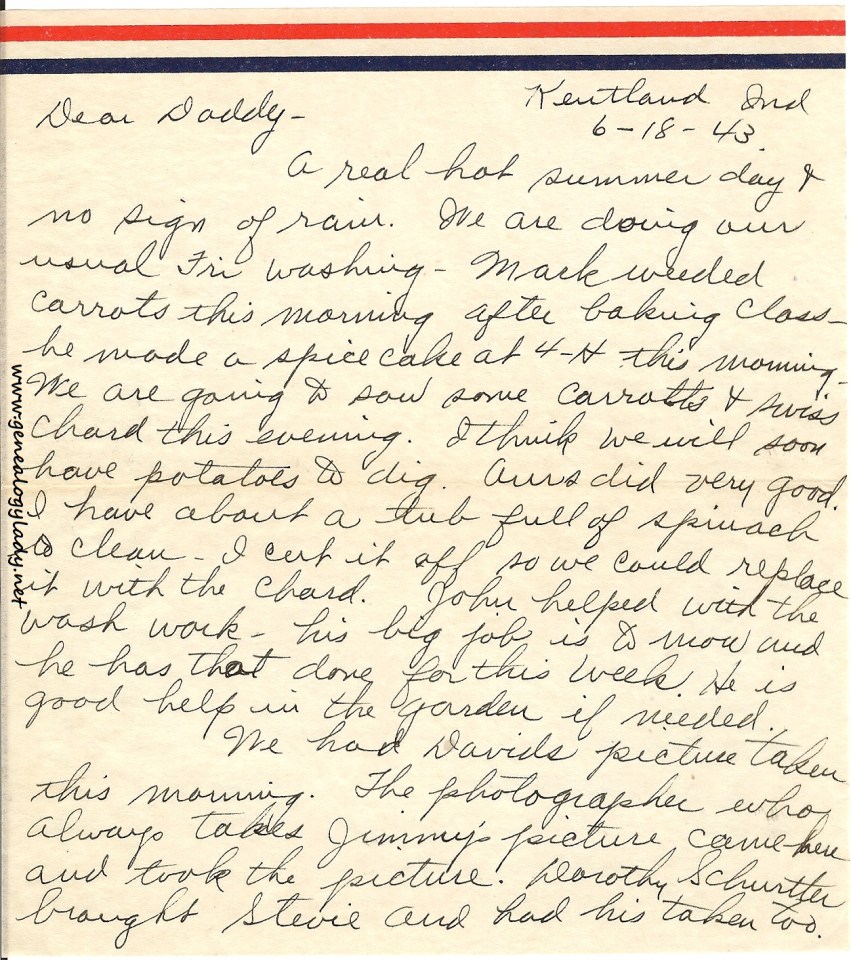 Kentland Ind
Dear Daddy-
6-18-43
A real hot summer day &
no sign of rain. We are doing our
usual Fri washing - Mack weeded
carrots this morning after baking class-
he made a spice cake at 4-H this morning-
We are going to sow some carrotts & swiss
chard this evening. I think we will soon
have potatoes to dig. Ours did very good.
I have about a tub full of spinach
to clean - I cut it off so we could replace
it with the chard. John helped with the
wash work - his big job is to mow and
he has that done for this week. He is
good help in the garden if needed.
We had Davids picture taken
this morning. The photographer who
always takes Jimmy's picture came here
and took the picture. Dorothy
brought Stevie and had his taken too.
www.genealogylady.net